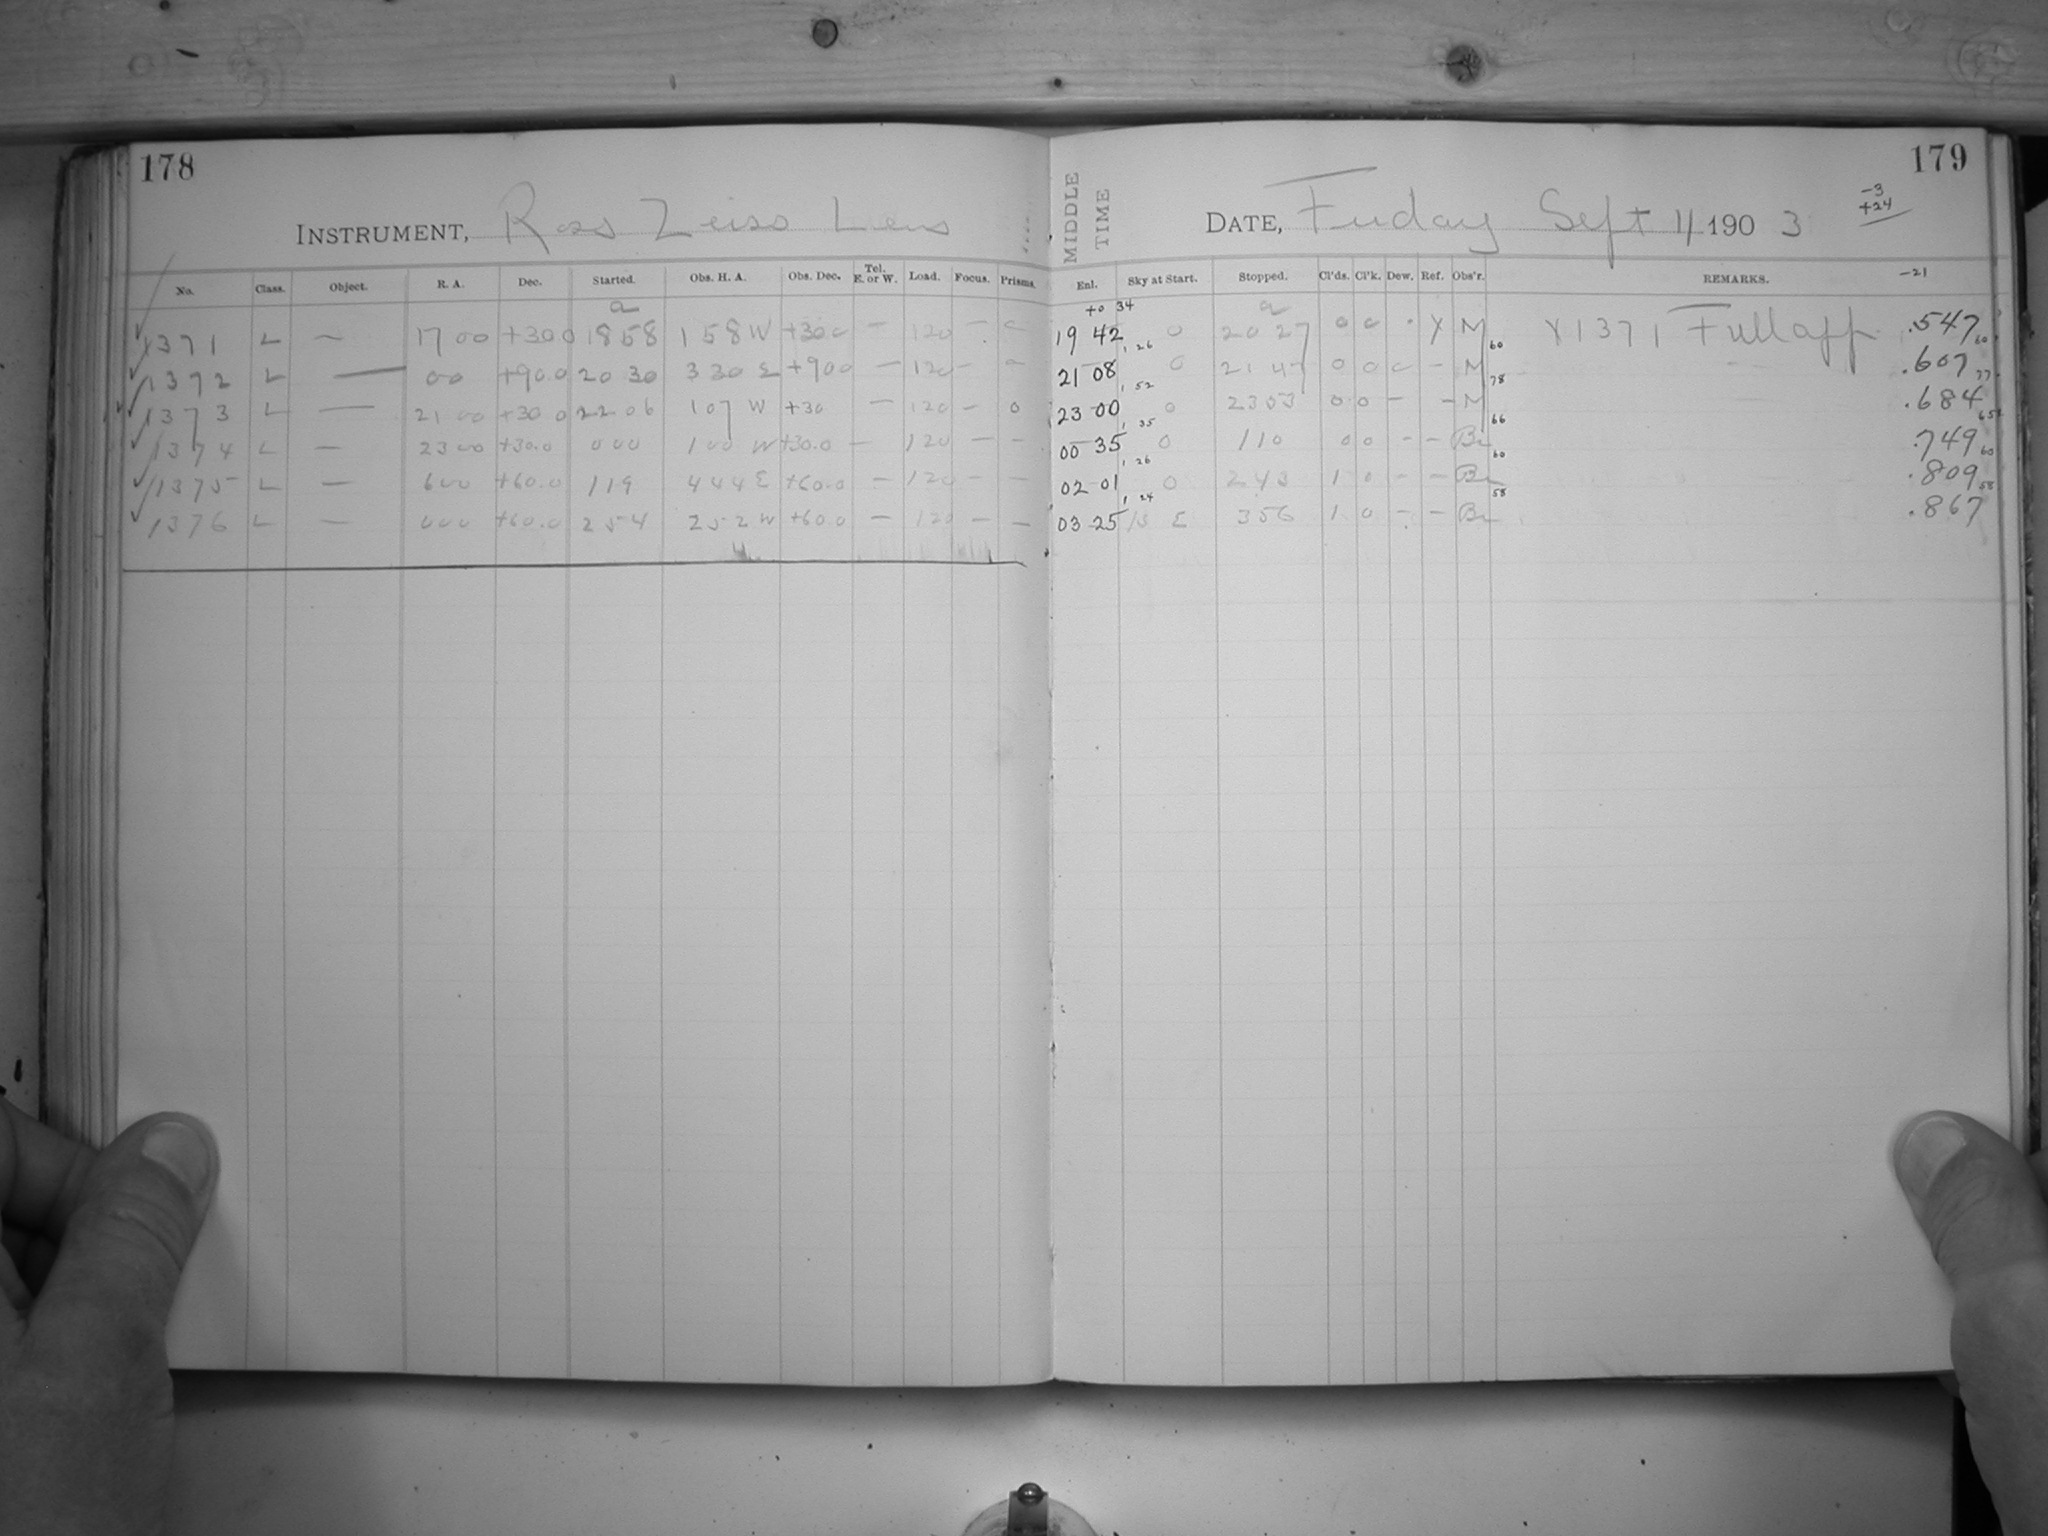 178
INSTRUMENT, Ross Zeiss Lens
No. Class. Object. R. A. Dec. Started. Obs. H. A. Obs. Dec. Tel. E. or W. Load. Focus. Prisms.
a
1371 L — 17 00 +30.0 18 58 1 58 W +30.0 — 120 — —
1372 L — 00 +90.0 20 30 3 30 E +90.0 — 120 — —
1373 L — 21 00 +30.0 22 06 1 07 W +30 — 120 — 0
1374 L — 23 00 +30.0 0 00 1 00 W +30.0 — 120 — —
1375 L — 6 00 +60.0 1 19 4 44 E +60.0 — 120 — —
1376 L — 0 00 +60.0 2 54 2 52 W +60.0 — 120 — —
179
MIDDLE TIME
-3
+24
DATE, Friday Sept 11 1903
-21
Enl. Sky at Start. Stopped. Cl'ds. Cl'k. Dew. Ref. Obs'r. REMARKS.
+0 34 a
19 42 0 20 27 0 0 · X M X 1371 Full app .547
1 26 60 60
21 08 0 21 47 0 0 0 — M .607
1 52 78 77
23 00 0 23 53 0 0 — — M .684
1 35 66 65
00 35 0 1 10 0 0 — — Br .749
1 26 60 60
02 01 0 2 43 1 0 — — Br .809
1 24 58 58
03 25 B E 3 56 1 0 — — Br .867